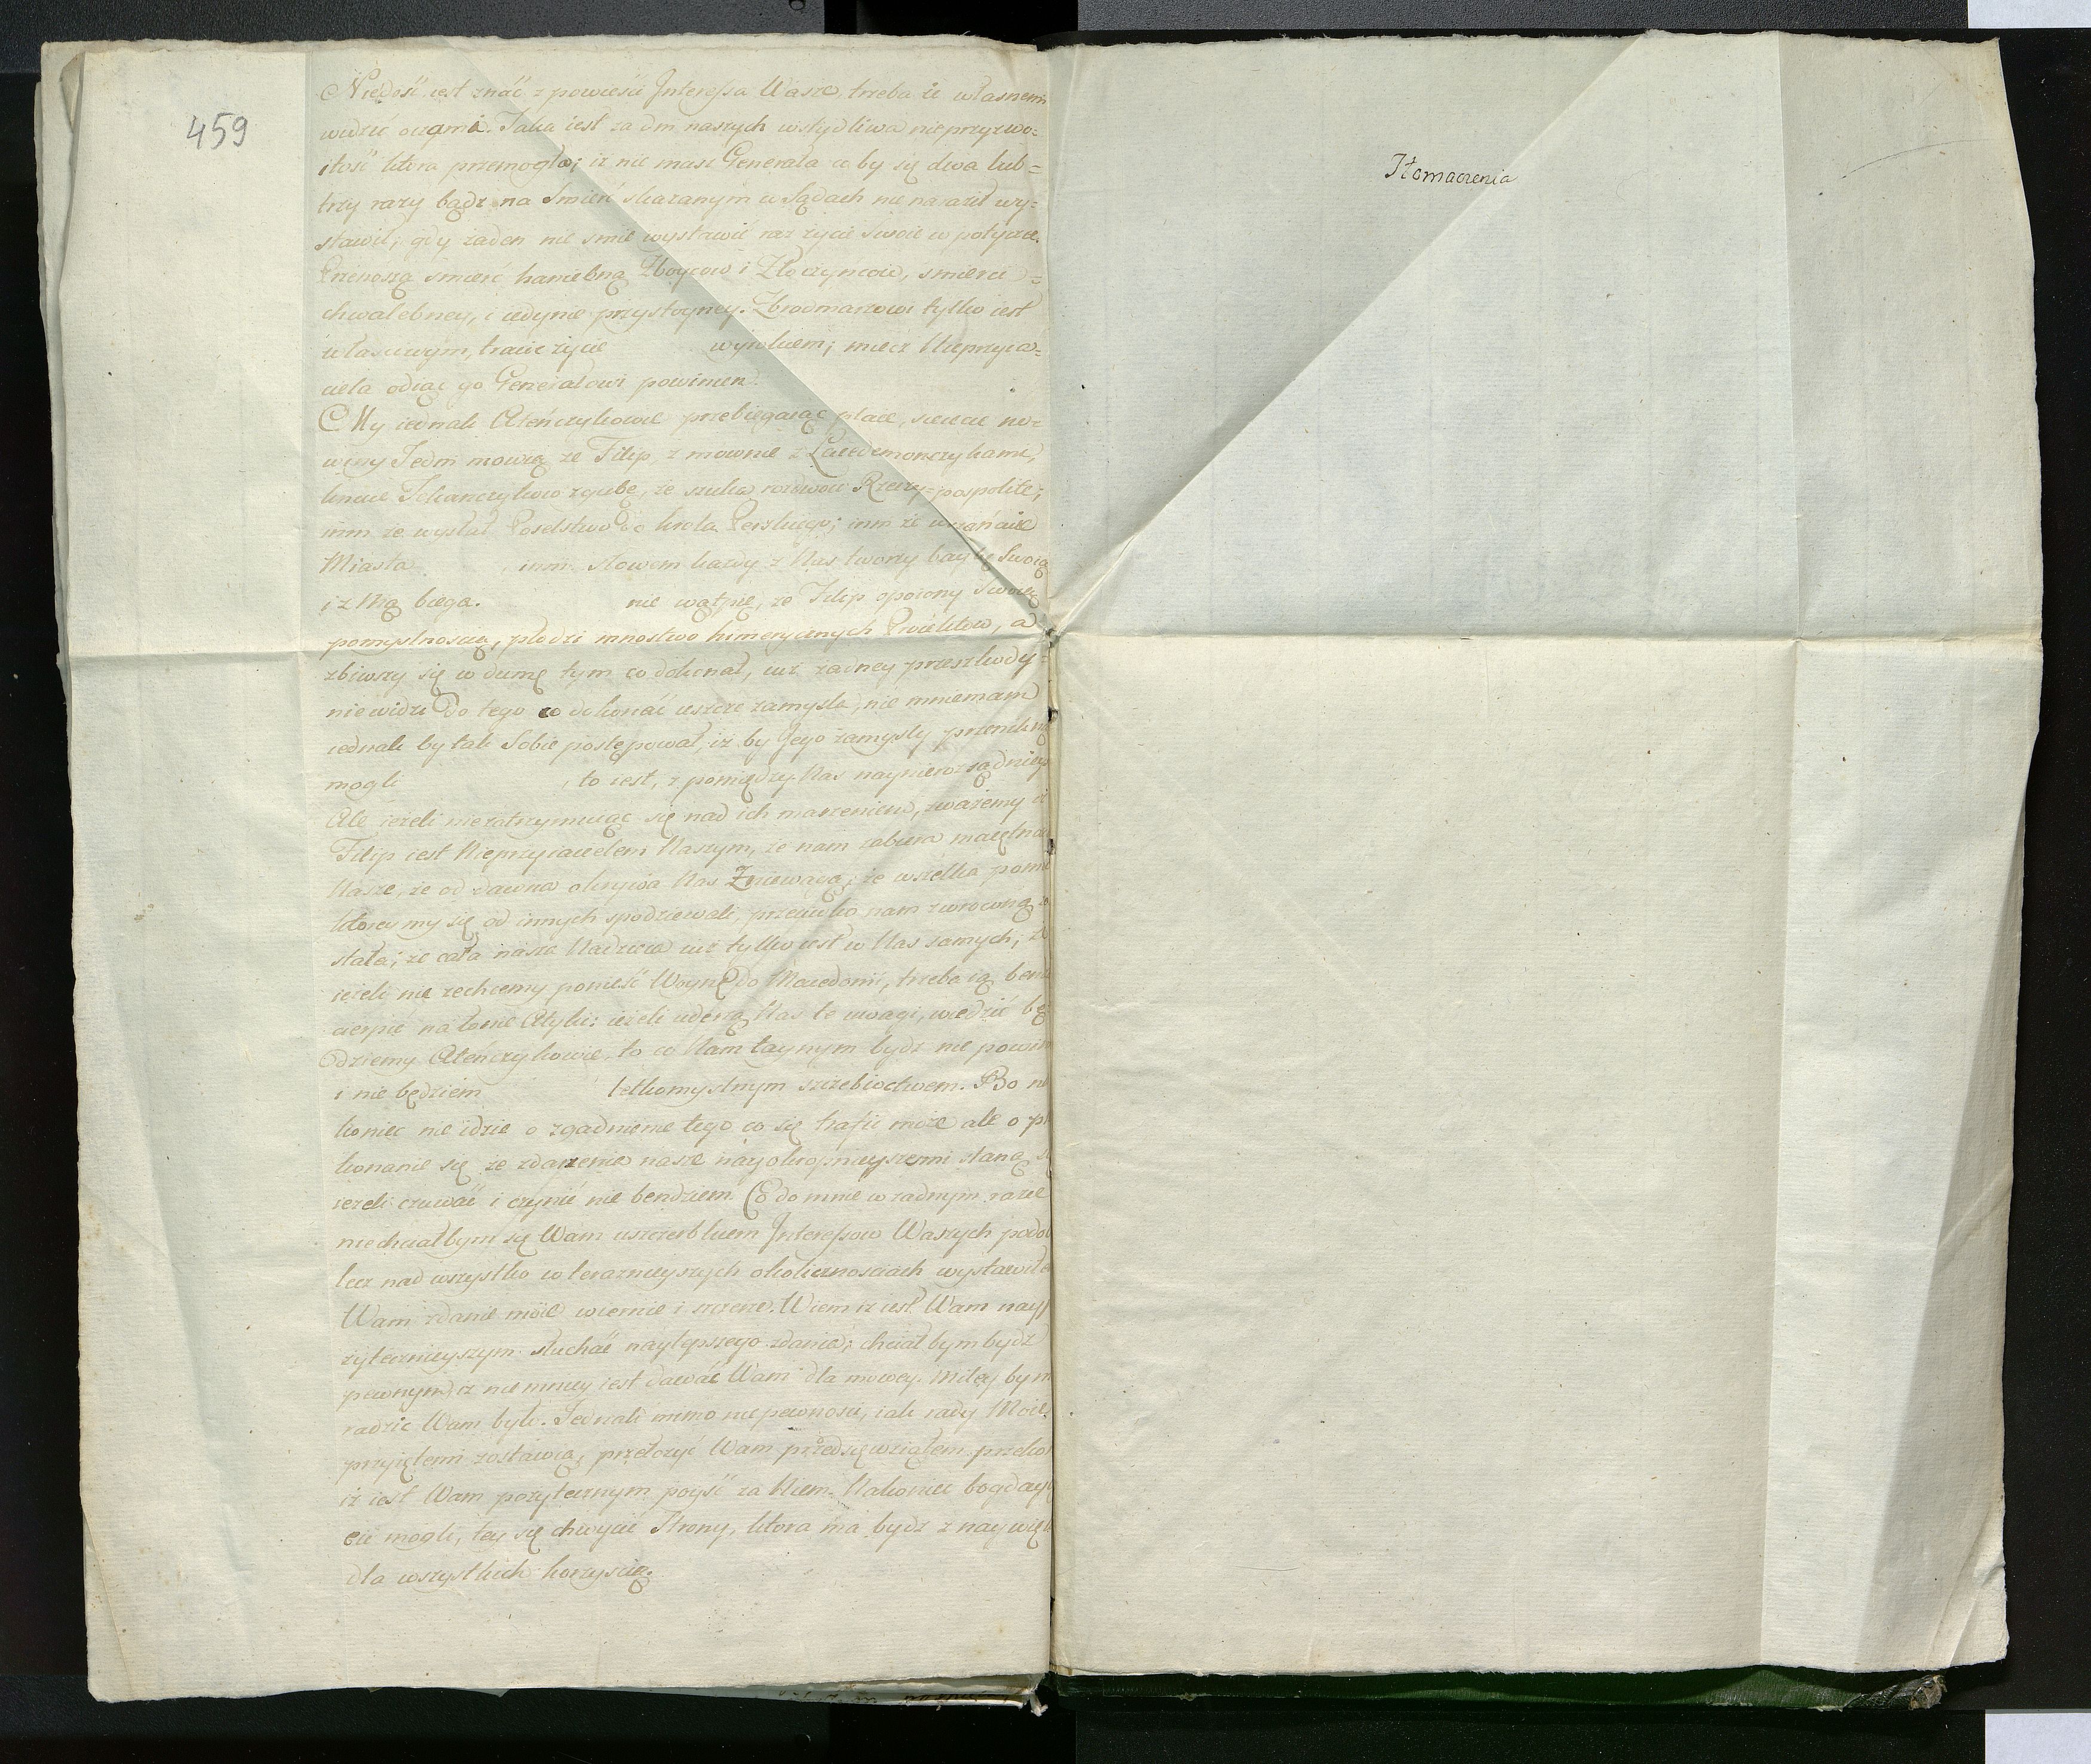 459
Niedość iest znać z powieści Interessa Wasze, trzeba ie własnemi
widzić oczami. Jaka iest za dni naszych wstydliwa nieprzyzwo=
itość ktora przemogła; iż nie masz Generała co by się dwa lub=
trzy razy bądz na Smierć skazanym w Sądach nie naraził wy=
stawił; gdy żaden nie smie wystawić raz życie swoie w potyczce.
Przenoszą smierć haniebną Zboycow i Złoczyncow, smierci =
chwalebney, i iedynie przystoyney. Zbrodniarzowi tylko iest
właściwym, tracić życie wyrokiem; miecz Nieprzyia=
ciela odiąć go Generałowi powinien.
My iednak Ateńczykowie przebiegaiąc place, sieiecie no=
winy Jedni mowią że Filip, z mownie z Lacedemonczykami,
knuie Tebanczykow zgubę, że szuka rozwodu Rzeczy=pospolite;
inni że wysłał Poselstwo do krola Perskiego; inni że umacnia
Miasta inni. Słowem każdy z Nas tworzy baykę Swoią
i z Nią biega. nie wątpię, że Filip opoiony Swoią
pomyslnoscią, płodzi mnostwo himerycznych Proiektow, a
zbiwszy się w dumę tym co dokonał, iuż żadney przeszkody=
nie widzi do tego co dokonać ieszcze zamysla, nie mniemam
iednak by tak Sobie postępował, iż by Jego zamysły przenikną
mogli , to iest, z pomiędzy Nas naynierozsądnieys
Ale ieżeli niezatrzymuiąc się nad ich marzeniem, zważemy iż
Filip iest Nieprzyiacielem Naszym, że nam zabiera maiętnoś
Nasze, że od dawna okrywa Nas Zniewagą; że wszelka pomo
ktorey my się od innych spodziewali, przeciwko nam zwrocona zo
stała; że cała nasza Nadzieia iuż tylko iest w Nas samych; że
ieżeli nie zechcemy ponieść Woynę do Macedonii, trzeba ią bend
cierpić na łonie Atyki: ieżeli uderzą Nas te uwagi, wiedzić bę=
dziemy Ateńczykowie, to co Nam taynym bydz nie powin
i nie będziem letkomyslnym szczebioctwem. Bo na
koniec nie idzie o zgadnienie tego co się trafić może ale o prze
konanie się że zdarzenia nasze nayokropnieyszemi staną się
ieżeli czuwać i czynić nie bendziem. Co do mnie w żadnym razie
niechciałbym się Wam uszczerbkiem Interessow Waszych podob
lecz nad wszystko w terazniejszych okolicznosciach wystawiłem
Wam zdanie moie wiernie i szczerze. Wiem iż iest Wam nayp
żytecznieyszym słuchać naylepszego zdania; chciał bym bydz
pewnym iż nie mniey iest dawać Wam dla mowcy. Miley bym
radzic Wam było. Jednak mimo niepewnosci, iak rady Moie
przyiętemi zostawią, przełożyć Wam przedsięwziąłem przekon
iż iest Wam pożytecznym poyść za Niem. Nakoniec bogdayś
cie mogli, tey się chwycić Strony, ktora ma bydz z naywięk
dla wszystkich korzyscią.
Tłomaczenia